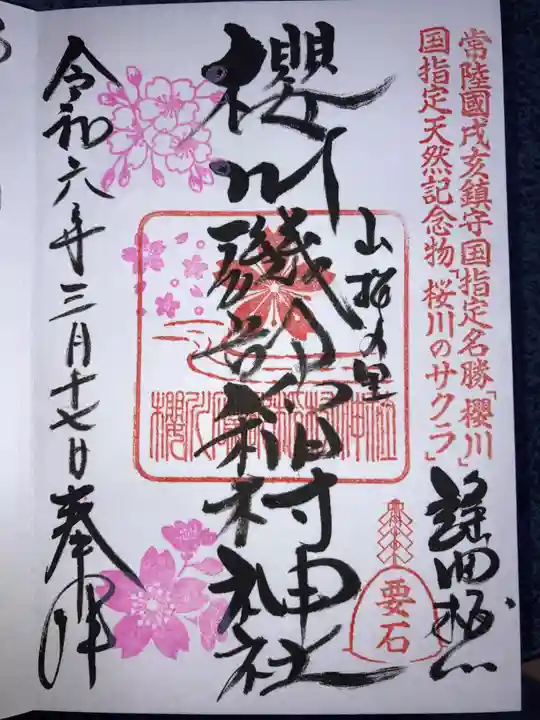 常陸國戌亥鎮守国指定名勝「櫻川」
国指定天然記念物「桜川のサクラ」
謡曲桜川
要石
山桜の里
櫻川磯部稲村神社
櫻川磯部稲村神社
令和六年三月十七日奉拝